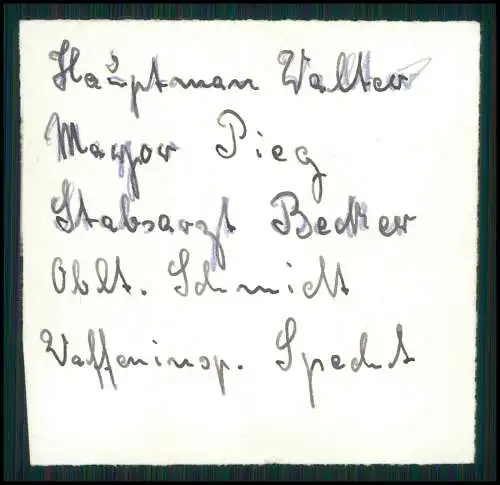 Hauptman Walter
Mayor Pieg
Stabsarzt Becker
Oblt. Schmidt
Waffeninsp. Specht